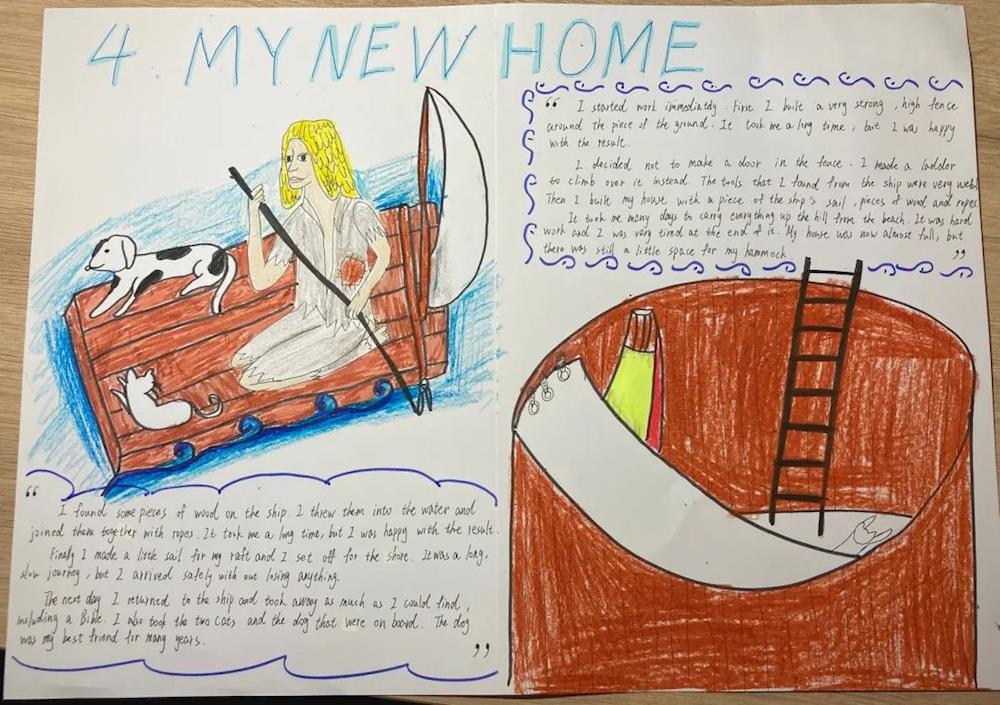 4 MY NEW HOME
“ I found some pieces of wood on the ship. I threw them into the water and
joined them together with ropes. It took me a long time, but I was happy with the result.
Finally I made a little sail for my raft and I set off for the shore. It was a long,
slow journey, but I arrived safely with out losing anything.
The next day I returned to the ship and took away as much as I could find,
including a Bible. I also took the two cats and the dog that were on board. The dog
was my best friend for many years. ”
“ I started work immediately. First I built a very strong, high fence
around the piece of the ground. It took me a long time, but I was happy
with the result.
I decided not to make a door in the fence. I made a ladder
to climb over it instead. The tools that I found from the ship were very useful.
Then I built my house with a piece of the ship's sail, pieces of wood and ropes.
It took me many days to carry everything up the hill from the beach. It was hard
work and I was very tired at the end of it. My house was now almost full, but
there was still a little space for my hammock. ”